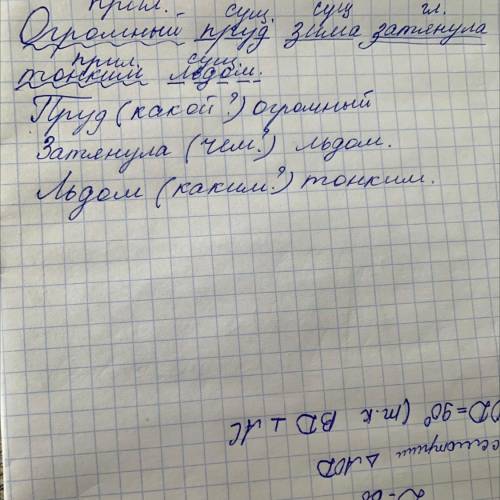 прил. сущ. сущ гл.
Огромный пруд зима затянула
прил. сущ.
тонкий льдом.
Пруд (какой?) огромный
Затянула (чем?) льдом.
Льдом (каким?) тонким.
D=90° (т.к BD ⊥ AC
△AOD